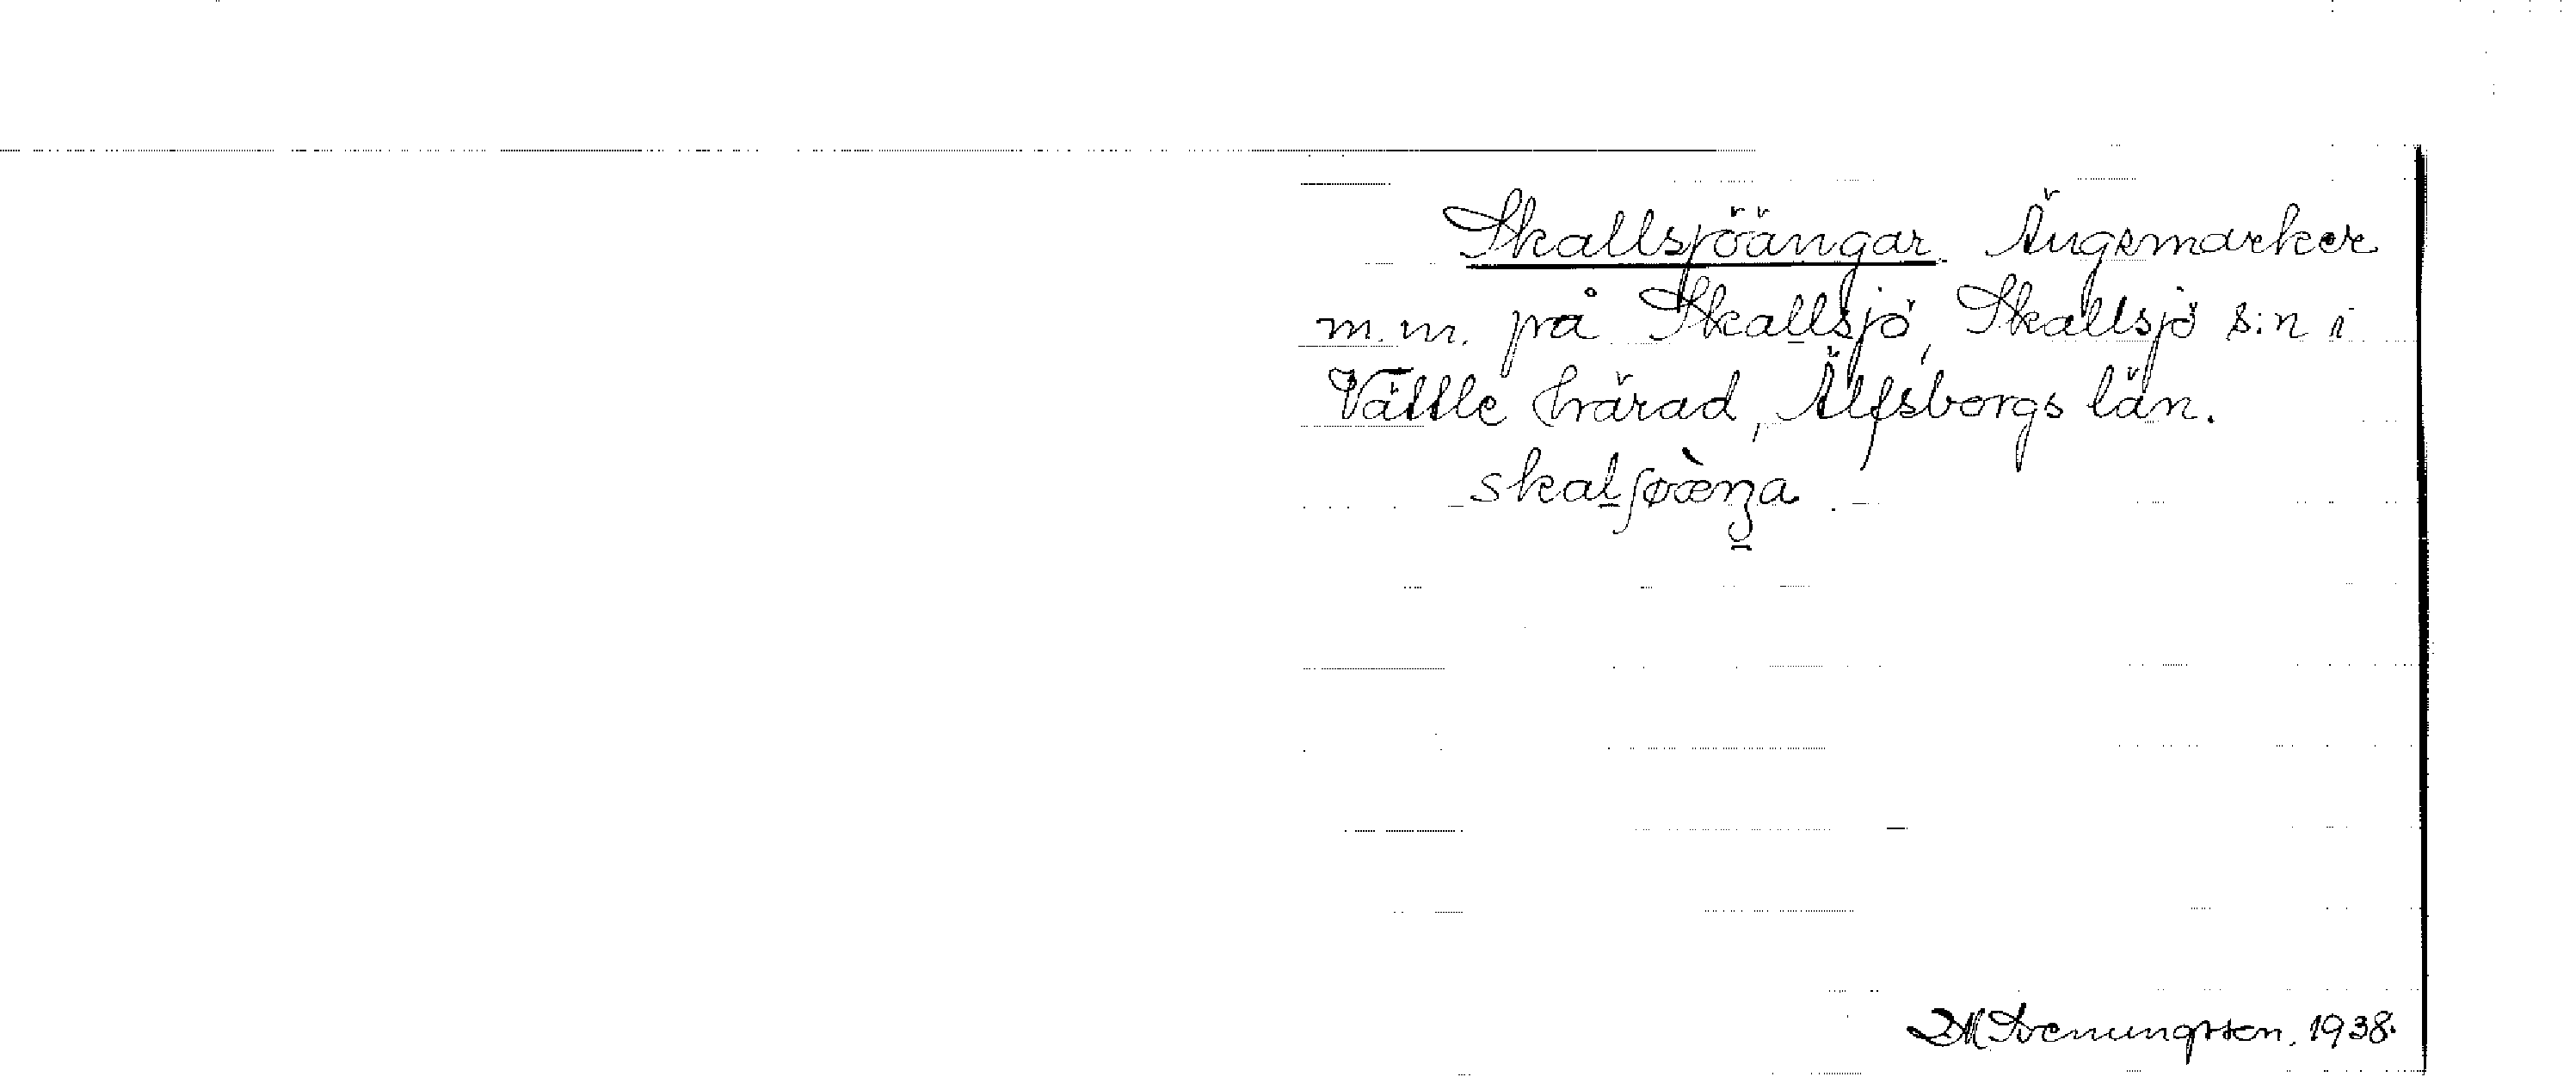 Skallsjöängar. Ängsmarker
m.m. på Skallsjö, Skallsjö s:n i
Vättle härad, Älfsborgs län.
skalʃøæ̀ŋa.
D M Svenungsson. 1938.